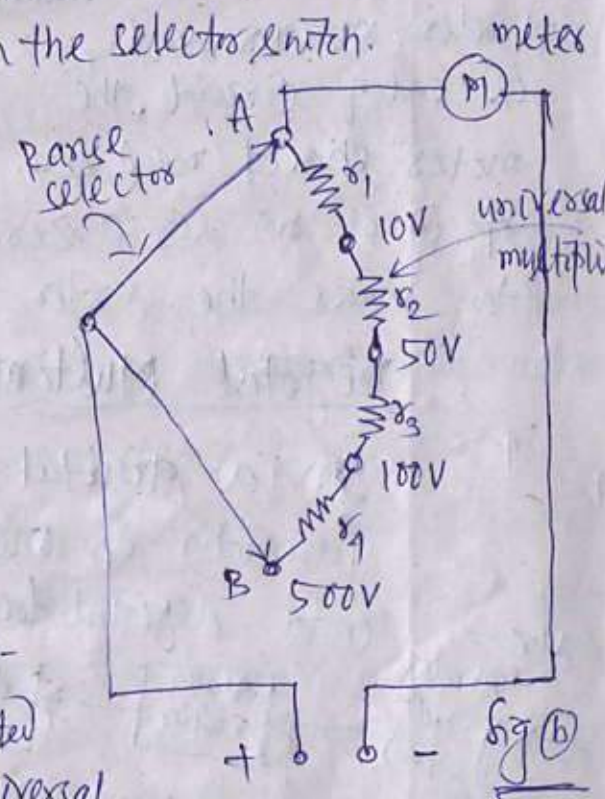 the selector switch.
meter
M
A
Range
selector
r1
10V
universal
r2
50V
r3
100V
r4
B
500V
+
-
fig (b)